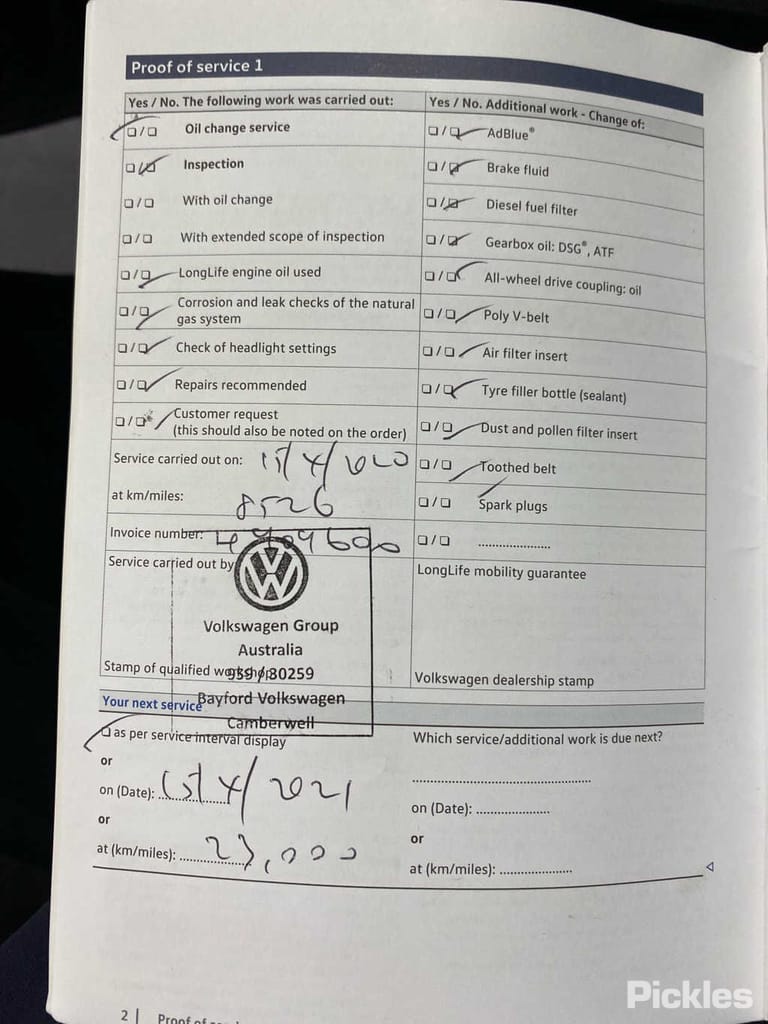 Proof of service 1
Yes / No. The following work was carried out:
❏ / ❏ Oil change service
❏ / ❏ Inspection
❏ / ❏ With oil change
❏ / ❏ With extended scope of inspection
❏ / ❏ LongLife engine oil used
❏ / ❏ Corrosion and leak checks of the natural
gas system
❏ / ❏ Check of headlight settings
❏ / ❏ Repairs recommended
❏ / ❏ Customer request
(this should also be noted on the order)
Service carried out on: 15/4/2020
at km/miles: 8526
Invoice number:
Service carried out by
Volkswagen Group
Australia
Stamp of qualified workshop
959 / 30259
Bayford Volkswagen
Camberwell
Yes / No. Additional work - Change of:
❏ / ❏ AdBlue®
❏ / ❏ Brake fluid
❏ / ❏ Diesel fuel filter
❏ / ❏ Gearbox oil: DSG®, ATF
❏ / ❏ All-wheel drive coupling: oil
❏ / ❏ Poly V-belt
❏ / ❏ Air filter insert
❏ / ❏ Tyre filler bottle (sealant)
❏ / ❏ Dust and pollen filter insert
❏ / ❏ Toothed belt
❏ / ❏ Spark plugs
❏ / ❏ .....................
LongLife mobility guarantee
Volkswagen dealership stamp
Your next service
❏ as per service interval display
or
on (Date): 15/4/2021
or
at (km/miles): 23,000
Which service/additional work is due next?
....................................................
on (Date): .....................
or
at (km/miles): .....................
2 | Proof of
Pickles